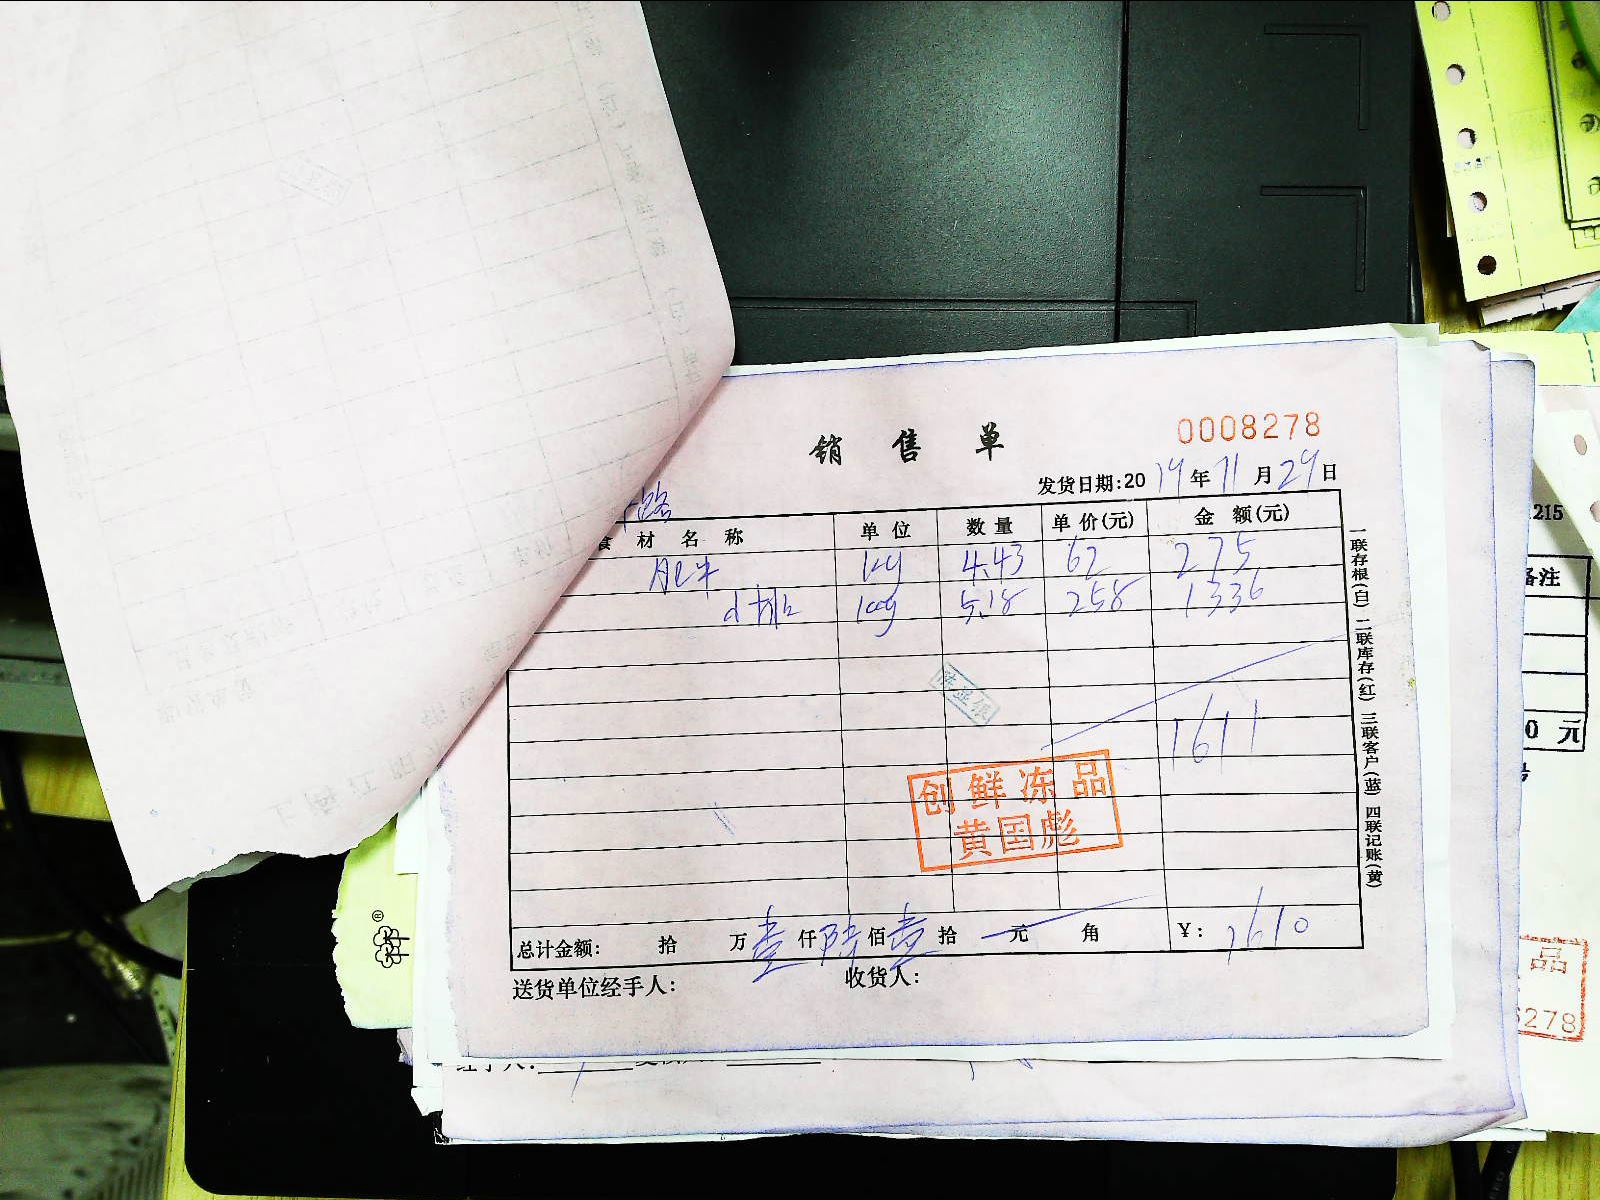 销售单
0008278
发货日期:2019年11月29日
路
食材名称 单位 数量 单价(元) 金额(元)
肥牛 kg 4.43 62 275
d排 kg 5.18 258 1336
1611
创鲜冻品
黄国彪
总计金额: 拾 万壹仟陆佰壹拾 元 角 ¥: 1610
送货单位经手人: 收货人:
一联存根(白) 二联库存(红) 三联客户(蓝) 四联记账(黄)
1215
备注
0 元
品
6278